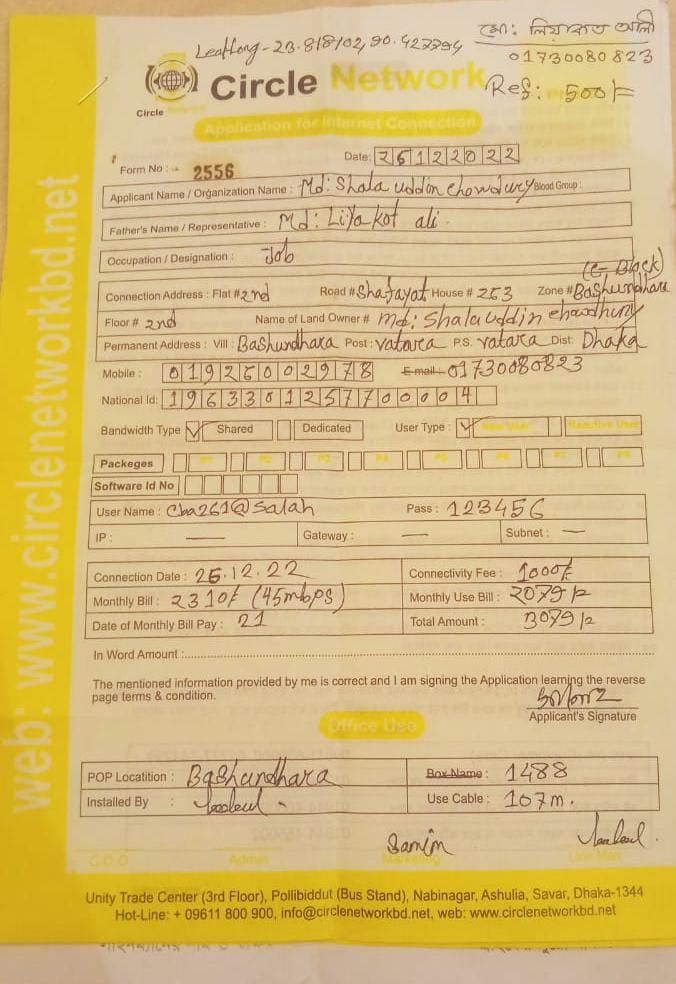 মো: লিয়াকত আলী
01730080823
Ref: 500/=
Circle Network
Circle
Application for Internet Connection
Form No : 2556
Date: 26122022
Applicant Name / Organization Name : Md: Shala uddin chowdury Blood Group :
Father's Name / Representative : Md: Liyakot ali.
Occupation / Designation : Job
(G Block)
Connection Address : Flat # 2nd Road # Shafayat House # 253 Zone # Bashundhara
Floor # 2nd Name of Land Owner # Md: Shalauddin chowdhury
Permanent Address : Vill : Bashundhara Post : vatara P.S. vatara Dist: Dhaka
Mobile : 01926002978 E-mail: 01730080823
National Id: 19633012577000041
Bandwidth Type Shared Dedicated User Type : New User Reactive User
Packeges P1 P2 P3 P4 P5 P6 P7 P8
Software Id No
User Name : Cba261@Salah Pass : 123456
IP : — Gateway : — Subnet : —
Connection Date : 26.12.22 Connectivity Fee : 1000/=
Monthly Bill : 2310/= (45mbps) Monthly Use Bill : 2079/=
Date of Monthly Bill Pay : 21 Total Amount : 3079/=
In Word Amount :
The mentioned information provided by me is correct and I am signing the Application learning the reverse
page terms & condition.
Applicant's Signature
Office Use
POP Locatition : Bashundhara Box Name : 1488
Installed By : Use Cable : 107m.
Samim
C.O.O Admin Marketing Line Man
Unity Trade Center (3rd Floor), Pollibiddut (Bus Stand), Nabinagar, Ashulia, Savar, Dhaka-1344
Hot-Line: + 09611 800 900, info@circlenetworkbd.net, web: www.circlenetworkbd.net
web: www.circlenetworkbd.net